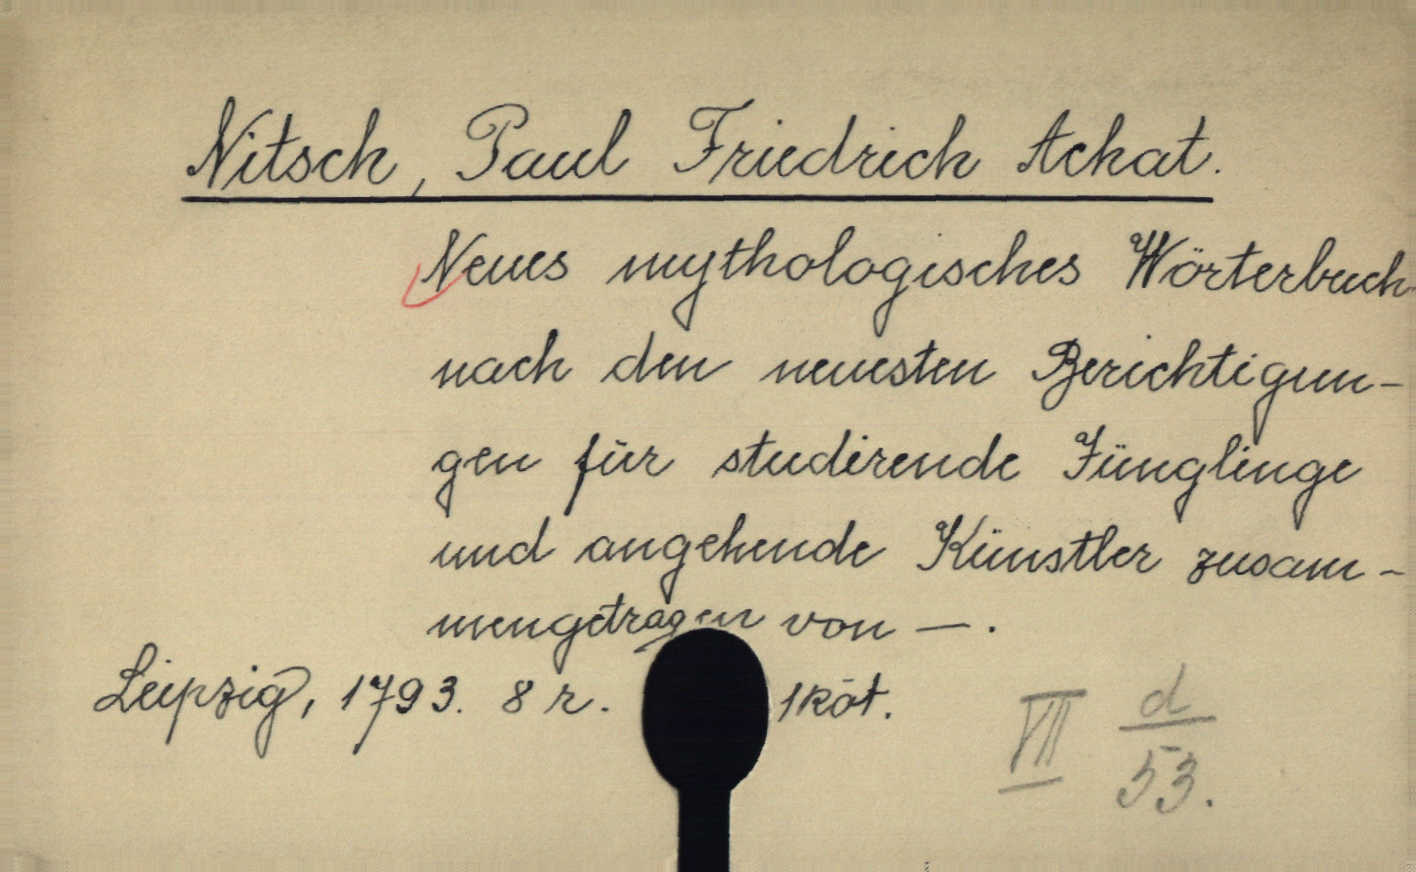 Nitsch, Paul Friedrich Achat.
Neues mythologisches Wörterbuch
nach den neuesten Berichtigun-
gen für studirende Jünglinge
und angehende Künstler zusam-
mengetragen von —.
Leipzig, 1793. 8 r. 1 köt.
VII d/53.